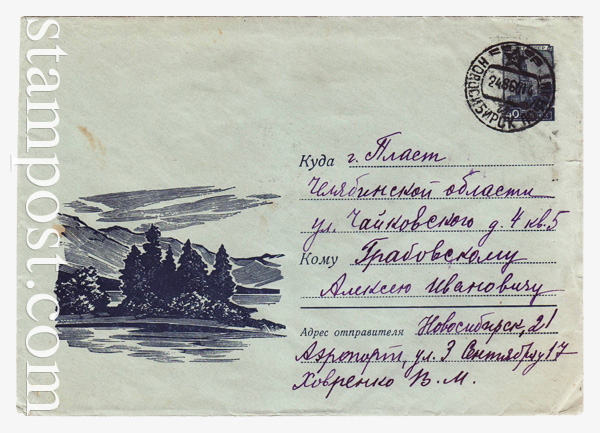 stampost.com
НОВОСИБИРСК
24860
Куда г. Пласт
Челябинской области
ул. Чайковского д. 4 кв. 5
Кому Грабовскому
Алексею Ивановичу
Адрес отправителя Новосибирск, 21
Аэропорт, ул. 3 Сентября 17
Ховренко В. М.